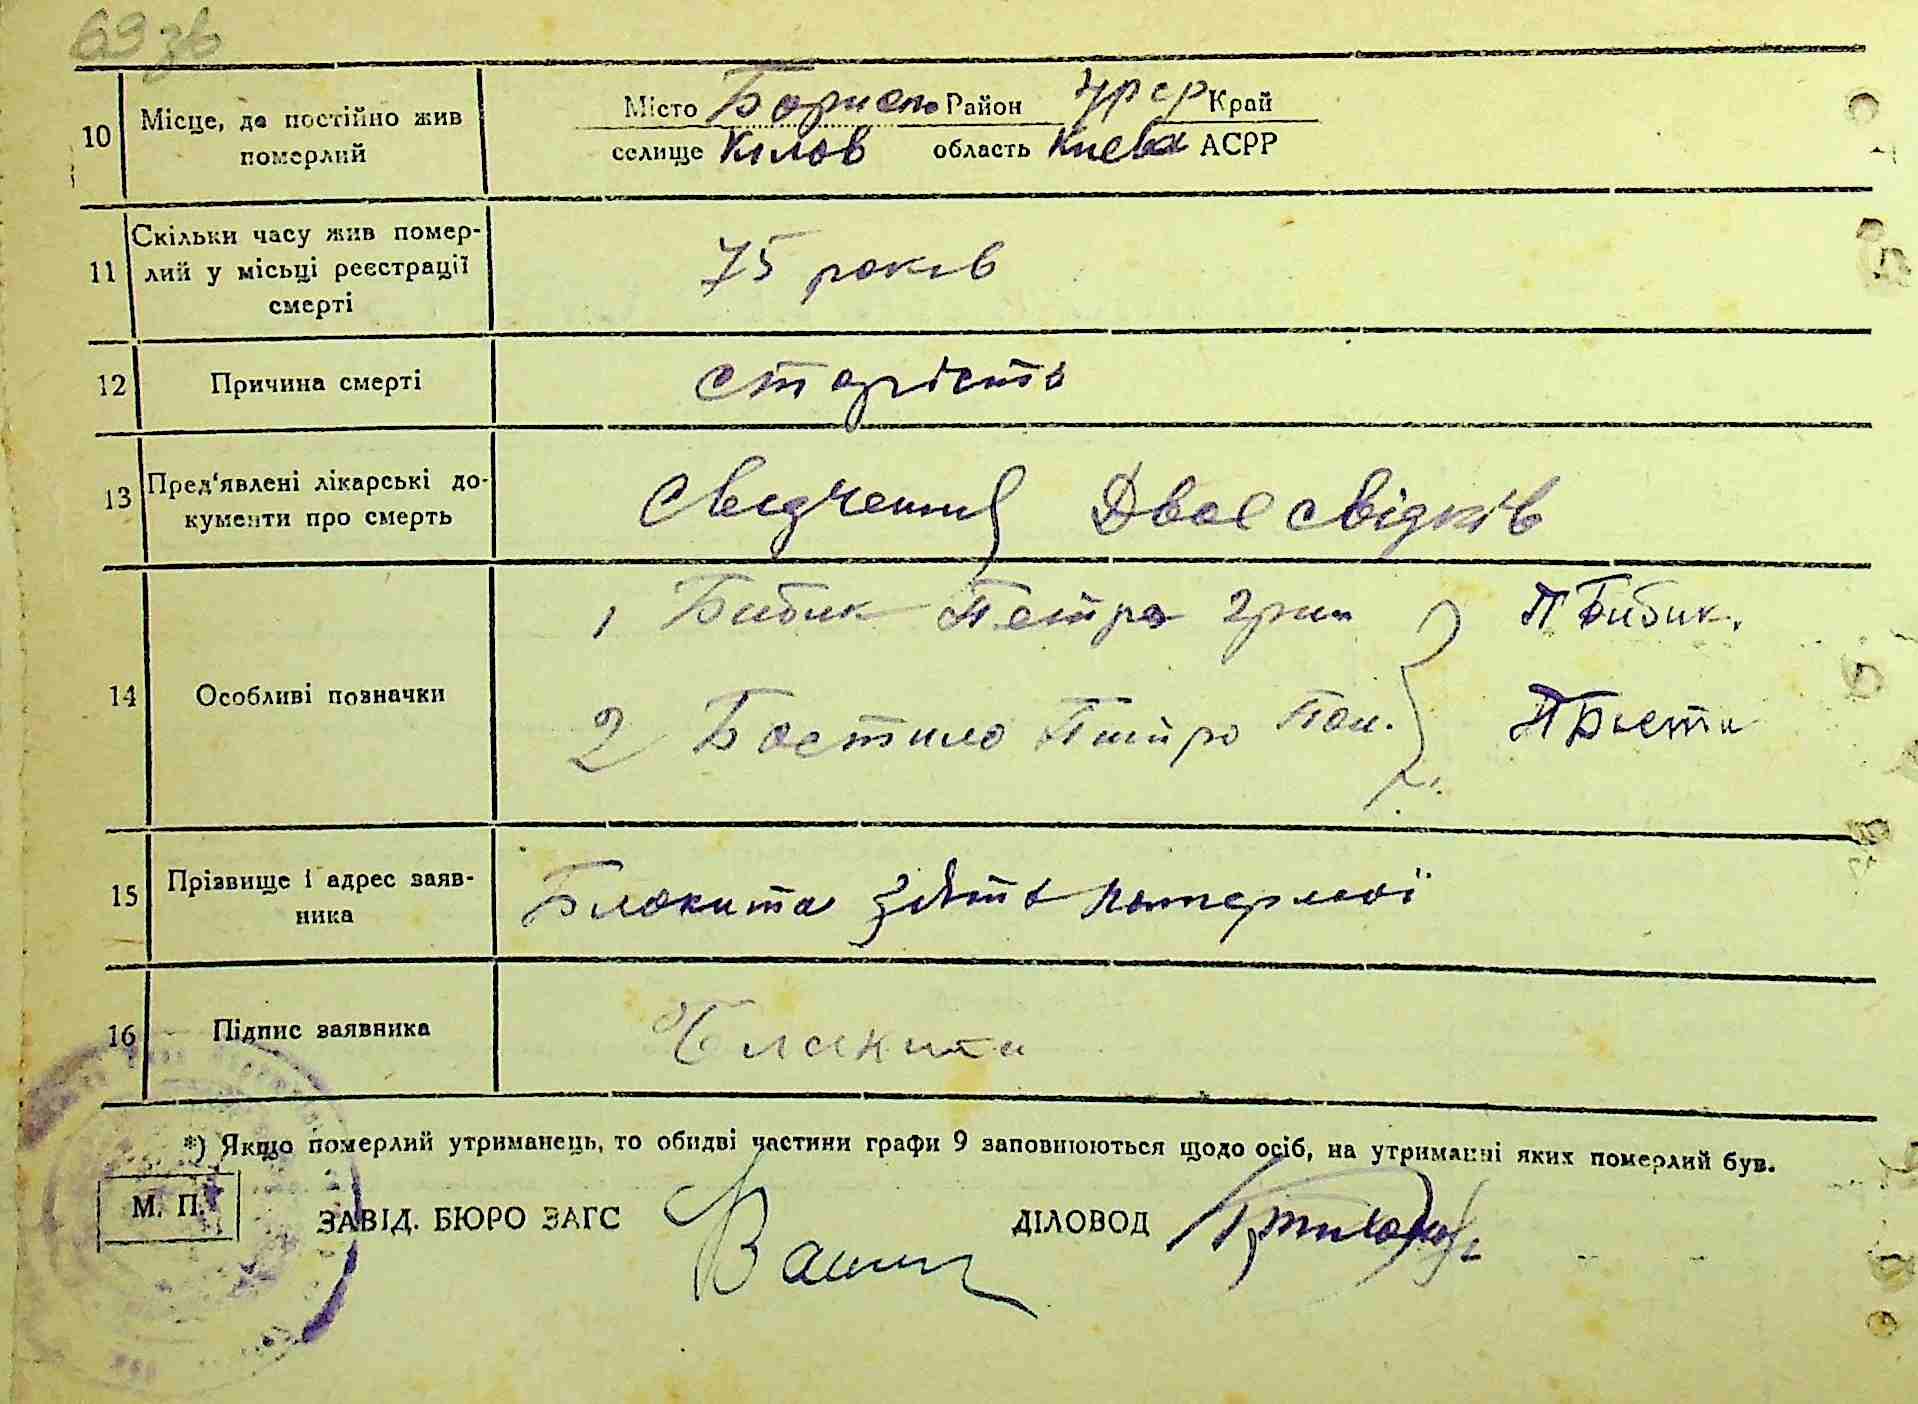 69 зв
10 Місце, де постійно жив померлий
Місто Бориспо Район УРСР Край
селище Кілов область Києва АСРР
11 Скільки часу жив помер-
лий у місьці реєстрації
смерті
75 років
12 Причина смерті
старість
13 Пред'явлені лікарські до-
кументи про смерть
Свідчення Двоє свідків
14 Особливі позначки
1 Бибик Петро Гри П Бибик.
2 Бостило Петро Пан.
15 Прізвище і адрес заяв-
ника
Блакита зять померлої
16 Підпис заявника
Блакита
*) Якщо померлий утриманець, то обидві частини графи 9 заповнюються щодо осіб, на утриманні яких померлий був.
М. П.
ЗАВІД. БЮРО ЗАГС
ДІЛОВОД